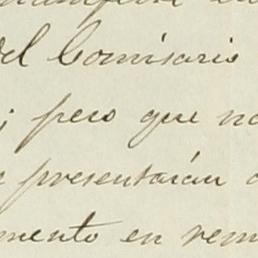 del Comisario
; pero que no
presentarán
mento en rem